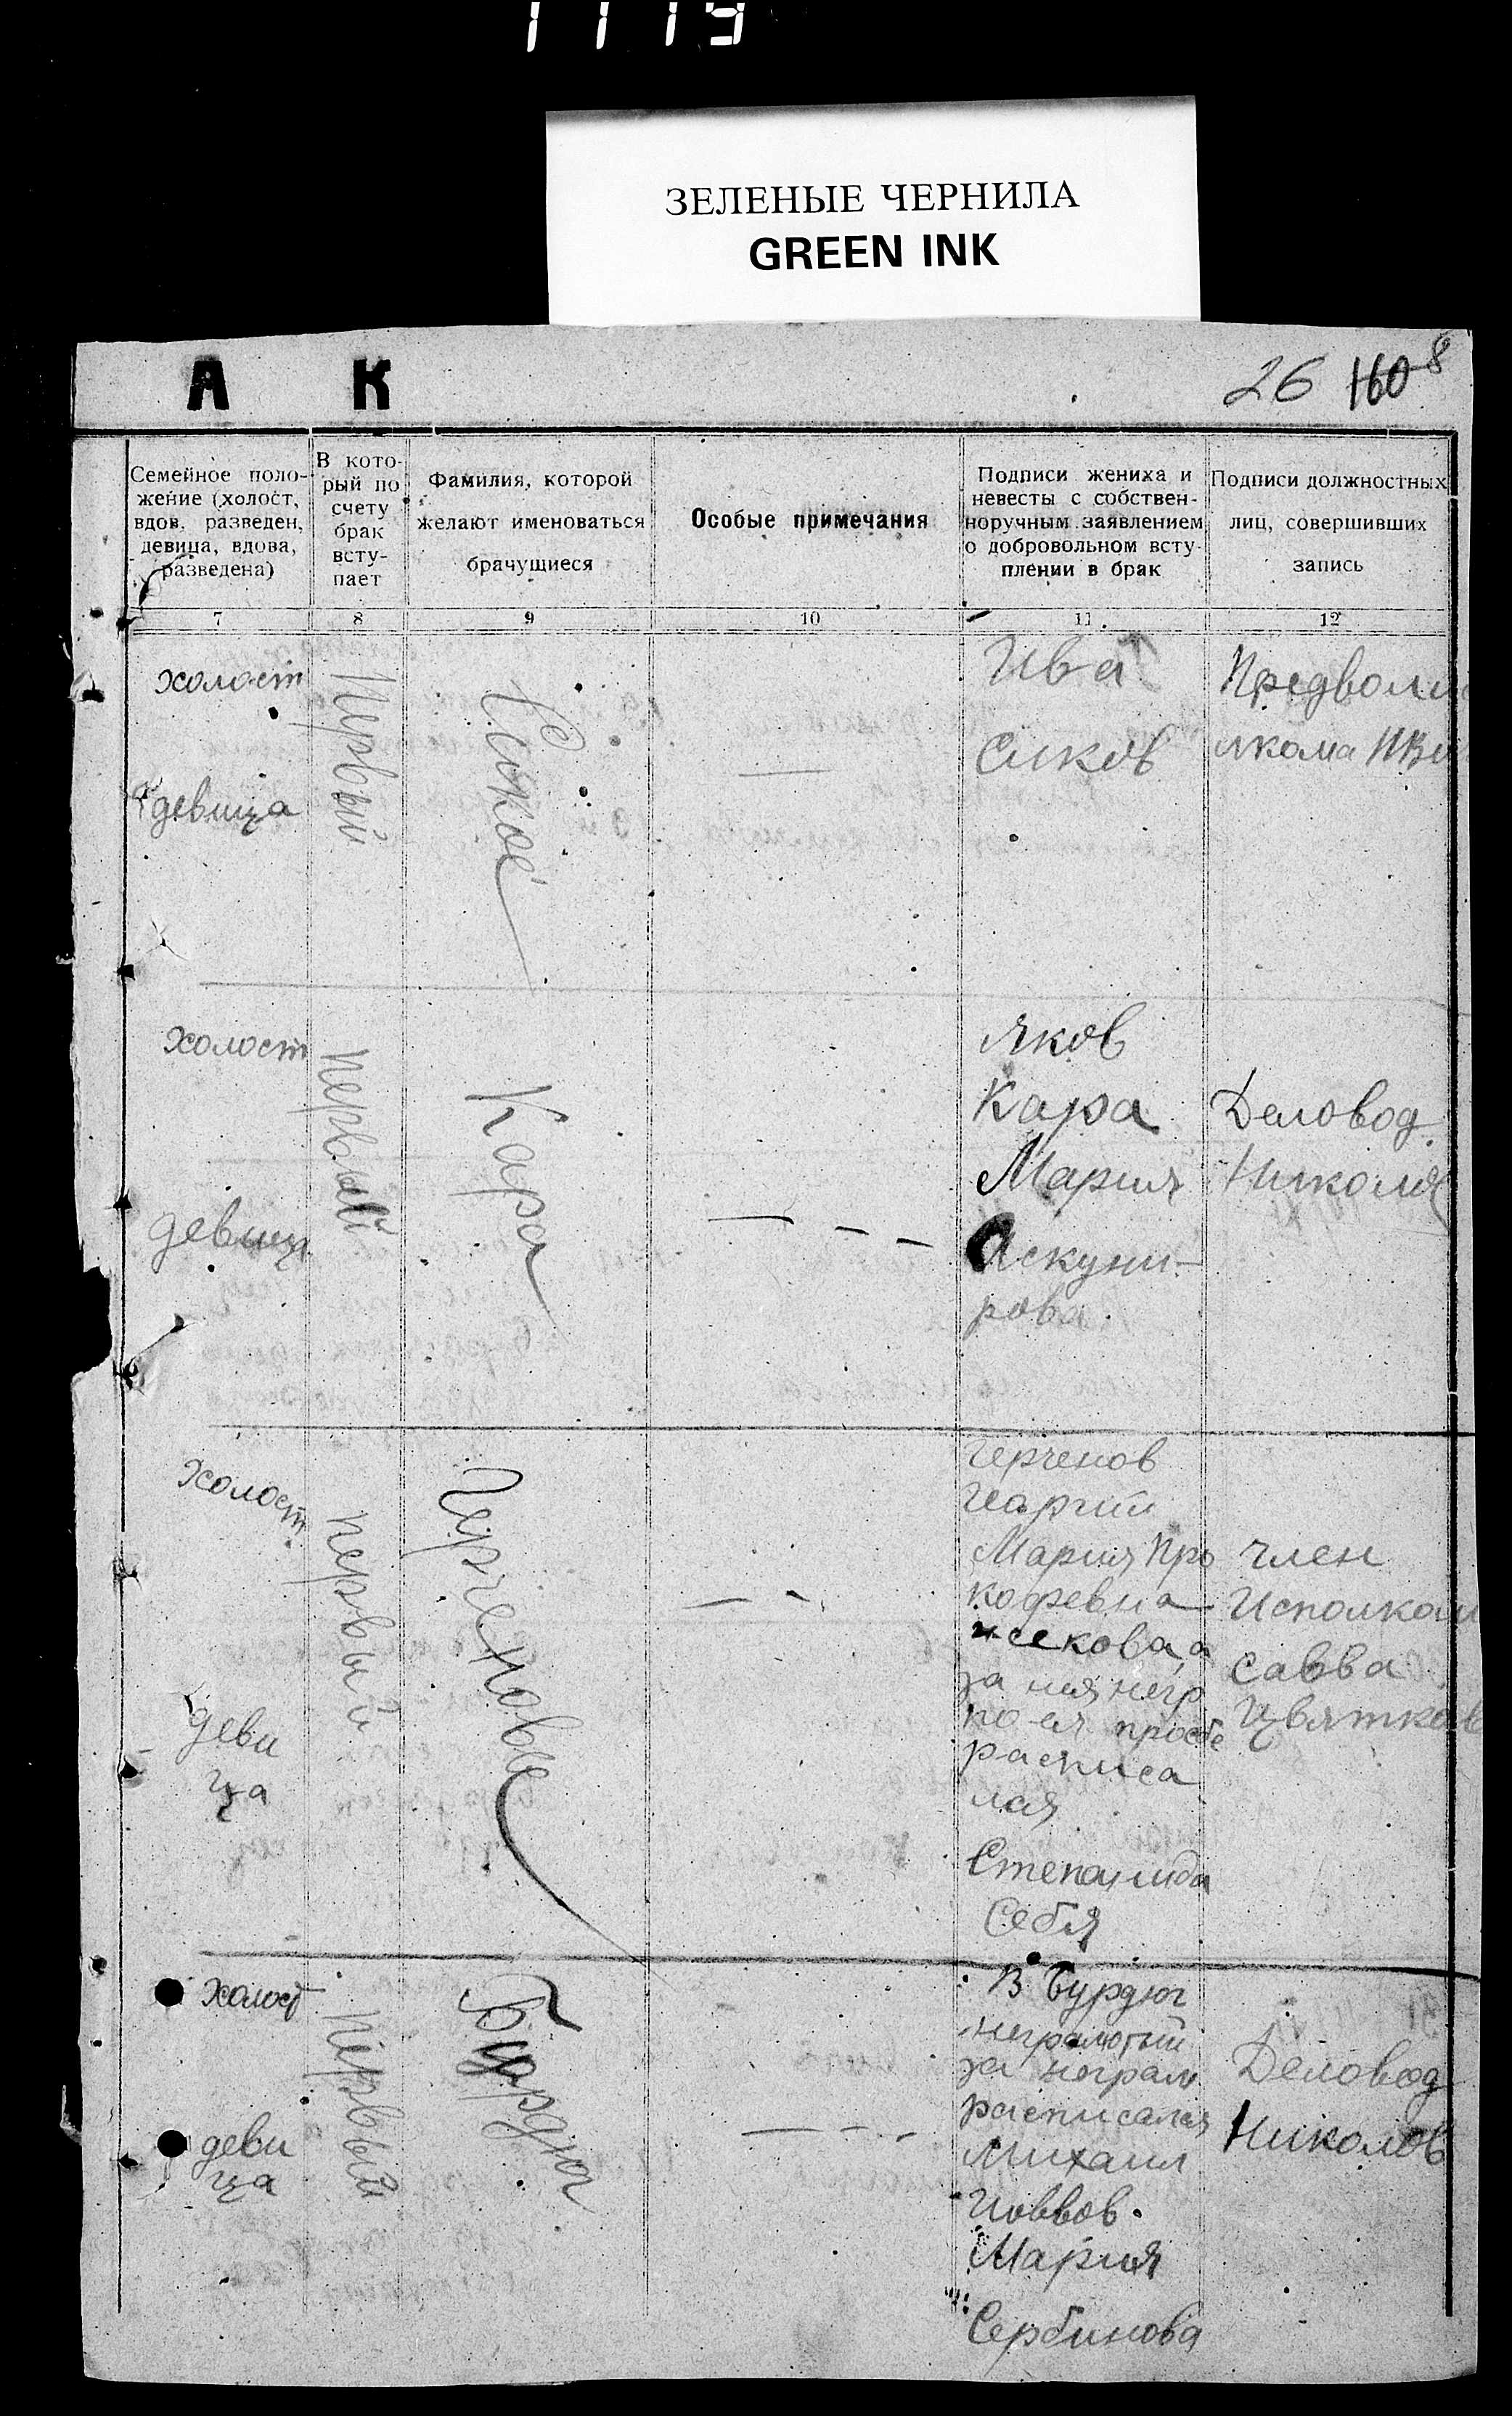 1119
ЗЕЛЕНЫЕ ЧЕРНИЛА
GREEN INK
А К
26 160 8
Семейное поло-
жение (холост,
вдов, разведен,
девица, вдова,
разведена)
В кото-
рый по
счету
брак
всту-
пает
Фамилия, которой
желают именоваться
брачущиеся
Особые примечания
Подписи жениха и
невесты с собствен-
норучным заявлением
о добровольном всту-
плении в брак
Подписи должностных
лиц, совершивших
запись
7 8 9 10 11 12
холост
девица
Первый
Ива
Сиков
Предволис
лкома
холост
девица
первый
Кара
Яков
Кара
Мария
Аскуни-
рова.
Деловод.
Николов
холост
деви
ца
первый
Герченов
Геаргий
Мария Про
кофевна
за
по ея прозбе
расписа
лая
Степанида
Себя
член
Исполком
савва
Цвятков
холост
деви
ца
Первый
Бурдюг
В Бурдюг
неграмотий
за неграм
расписался
Михаил
Иоввов.
Мария
Сербинова
Деловод
Николов